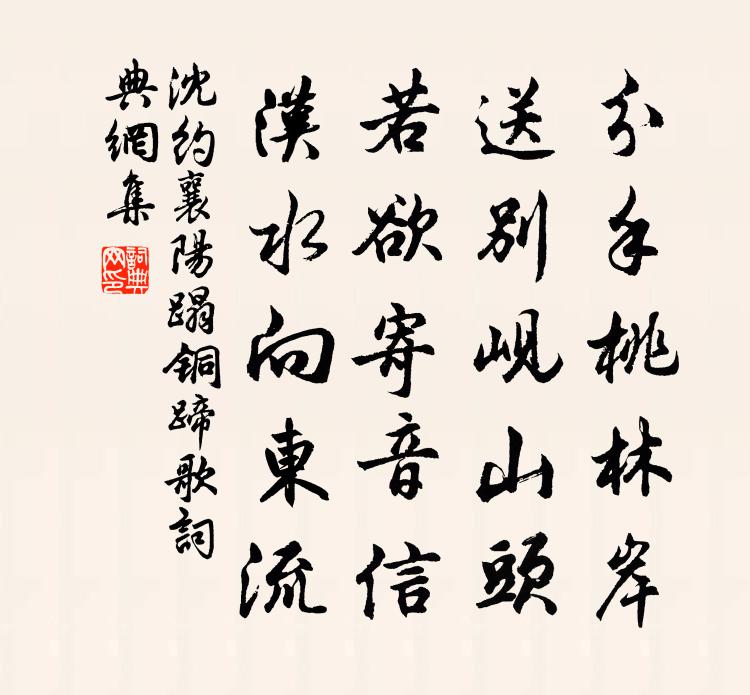 分手桃林岸
送別峴山頭
若欲寄音信
漢水向東流
沈約襄陽蹋銅蹄歌詞
典網集
詞典
网印